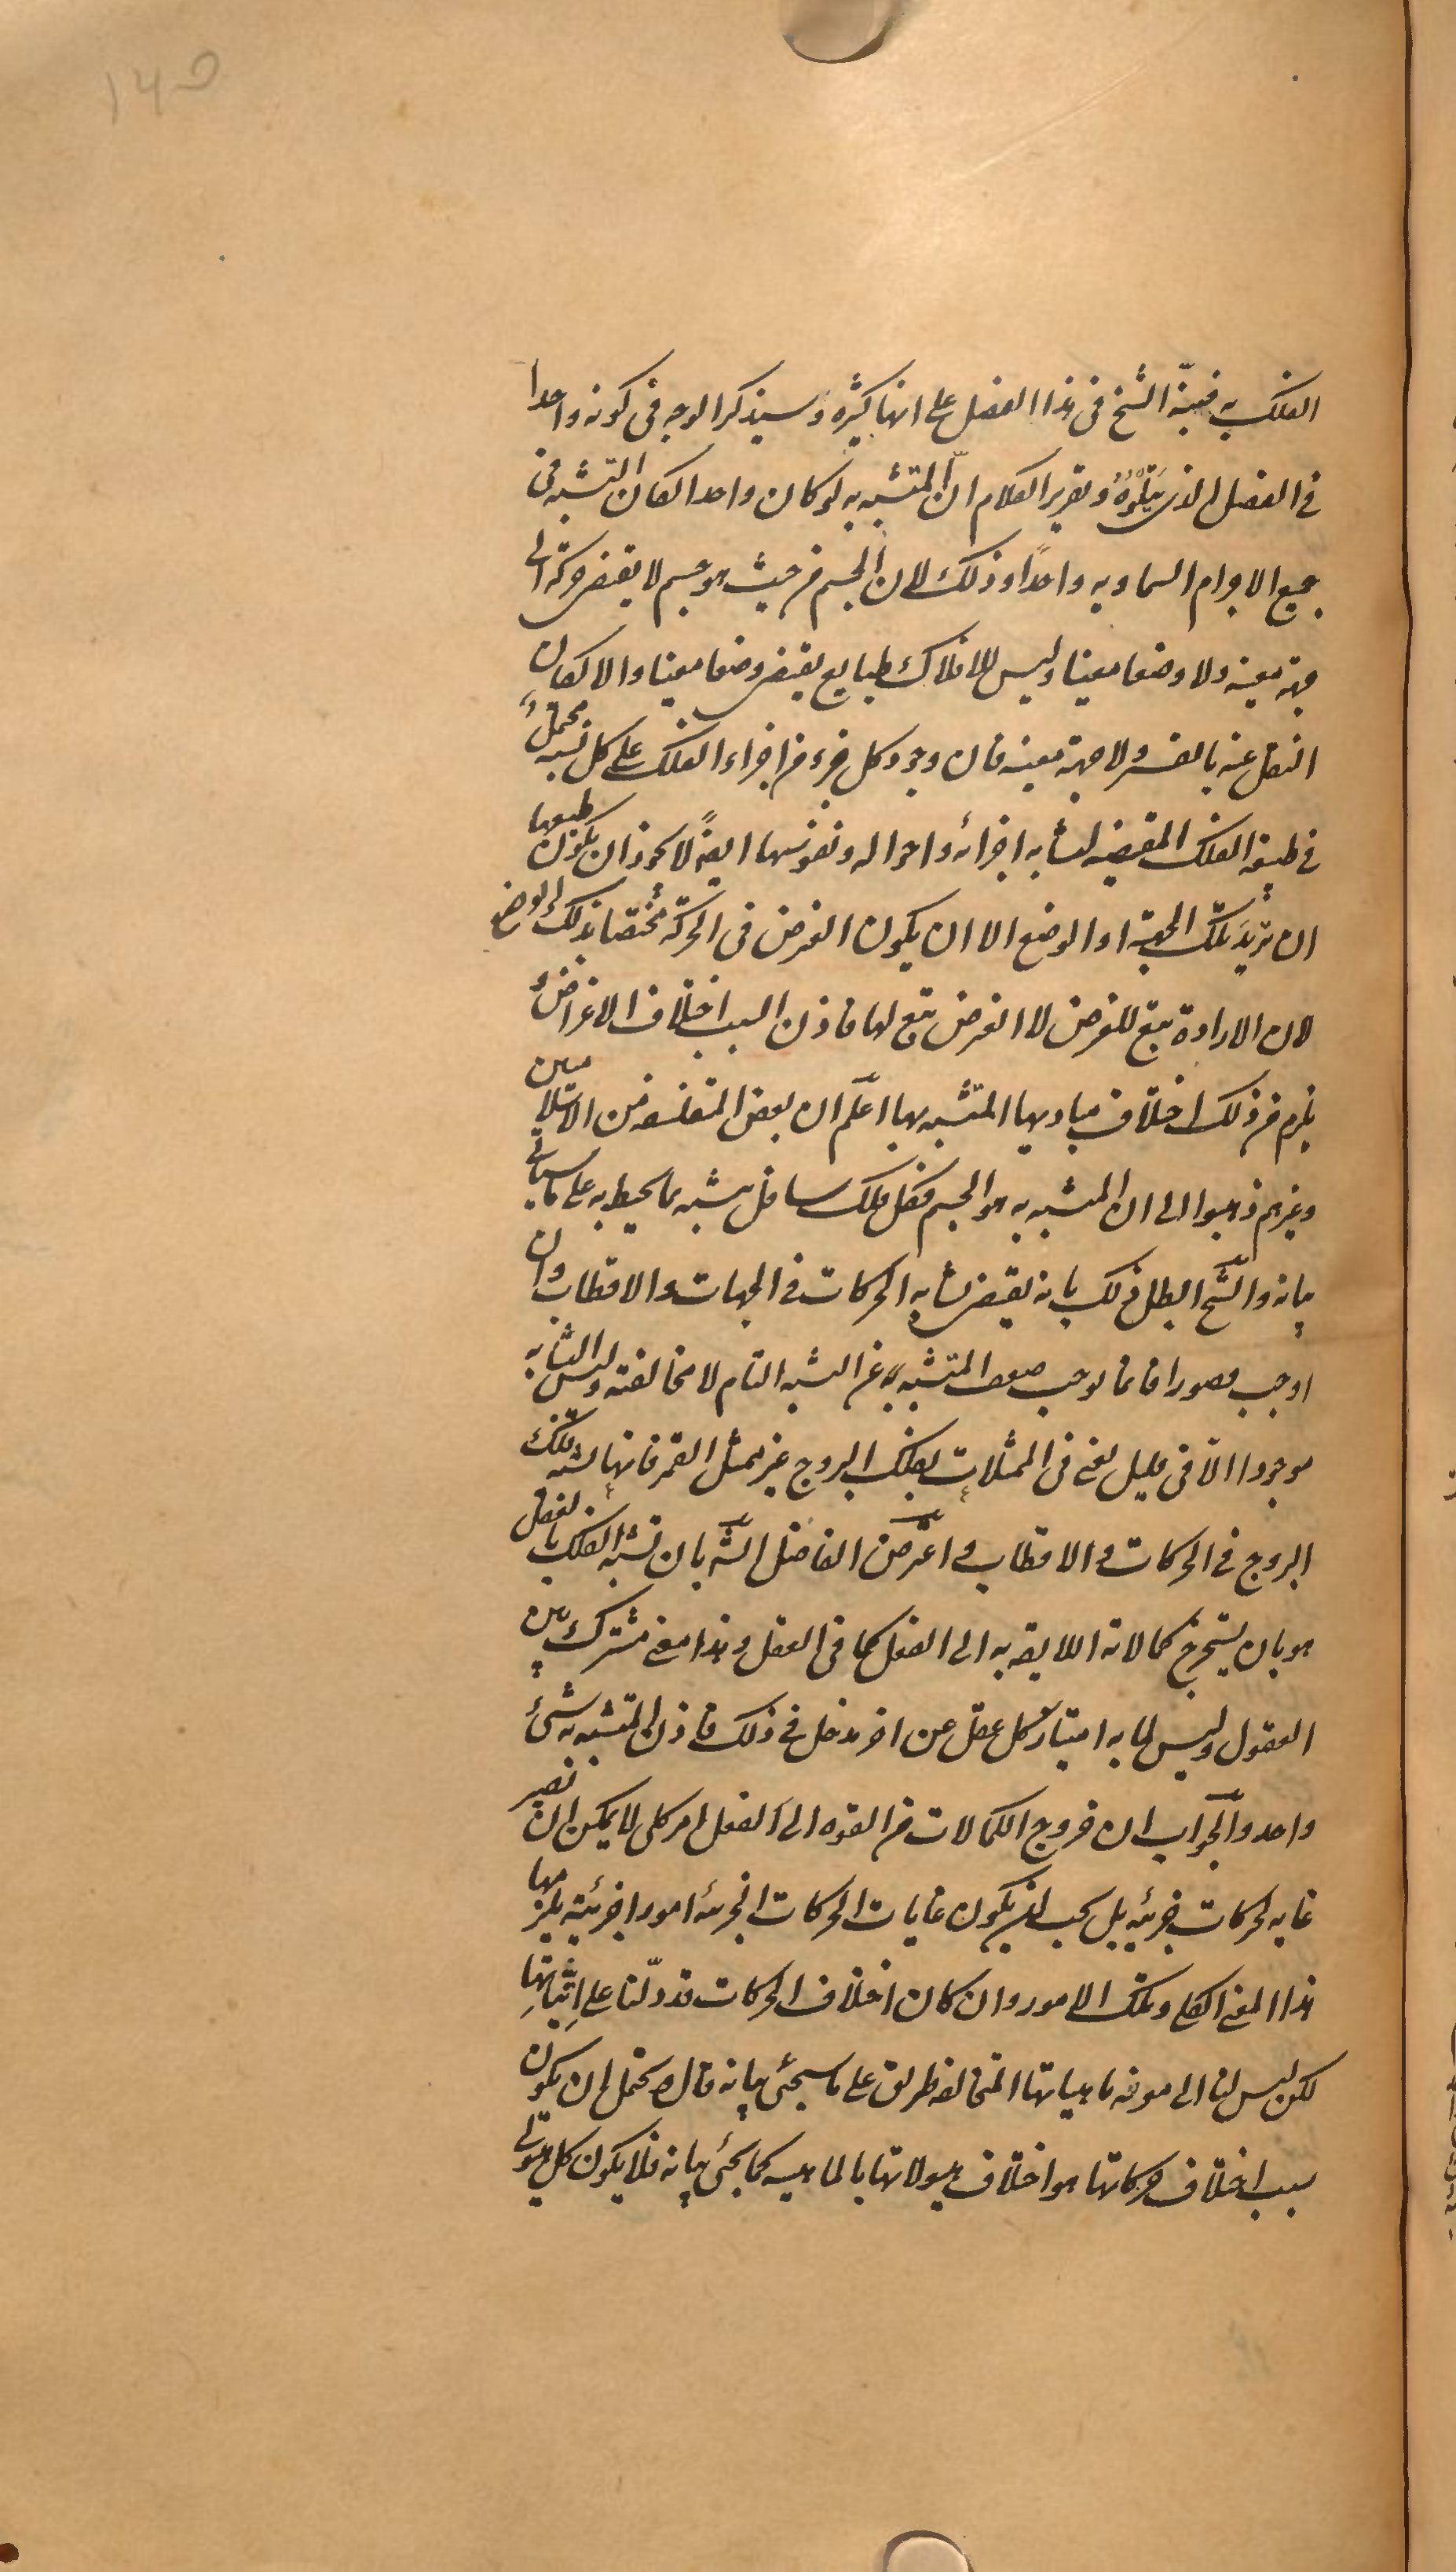 ١٤٥
الفلك به فنبّه الشيخ فى هذا الفصل على انها كثيرة و سيذكر الوجه فى كونه واحدا
فى الفصل الذى يَتْلُوهُ و تقرير الكلام انّ المتشبه به لو كان واحدا لكان التشبه فى
جميع الاجرام السماويه واحدًا و ذلك لان الجسم من حيث هو جسم لا يقتضى حركة الى
جهة معينه ولا وضعا معينا وليس للافلاك طبايع يقتضى وضعا معينا والا لكان
النقل عنه بالقسر ولا جهة معينه فان وجود كل جزء من اجزاء الفلك على كل نسبه محتملٌ
فى طبيعة الفلك المقتضيه لتشابه اجزائه و احواله و نفوسها ايضًا لا يجوز ان يكون طبعها
ان تريد تلك الجهة او الوضع الا ان يكون الغرض فى الحركة مختصا بذلك الوضع
لان الارادة تبع للغرض لا الغرض تبع لها فاذن السبب اختلاف الاغراض و
يلزم من ذلك اختلاف مباديها المتشبه بها اعلم ان بعض المتفلسفه من الاسلاميين
و غيرهم ذهبوا الى ان المتشبه به هو الجسم فكل فلك سافل يتشبه بما يحيط به على ما سيأتى
بيانه و الشيخ ابطل ذلك بانه يقتضى تشابه الحركات فى الجهات والاقطاب و ان
اوجب قصورا فانما يوجب ضعف المتشبه به عن التشبه التام لا مخالفته وليس التشابه
موجودا الّا فى قليل يعنى فى الممثلات بفلك البروج غير ممثل القمر فانها يشبه فلك
البروج فى الحركات و الاقطاب و اعترض الفاضل الشّ بان تشبه الفلك بالعقل
هو بان يستخرج كمالاته اللايقه به الى الفعل كما فى العقل و هذا معنى مشترك بين
العقول وليس لما به امتياز كل عقل عن اخر مدخل فى ذلك فاذن المتشبه به شئ
واحد و الجواب ان خروج الكمالات من القوه الى الفعل امر كلى لا يمكن ان تصير
غايه لحركات جزئيه بل يجب ان يكون غايات الحركات الجزئيه امورا جزئية يلزمها
هذا المعنى الكلى و تلك الامور و ان كان اختلاف الحركات قد دلّنا على اِثباتهاِ
لكن ليس لنا الى معرفه ماهياتها المتخالفه طريق على ما سيجئ بيانه قال و يحتمل ان يكون
سبب اختلاف حركاتها هو اختلاف هيولاتها بالماهيه كما يجئ بيانه فلا يكون كل هيولى